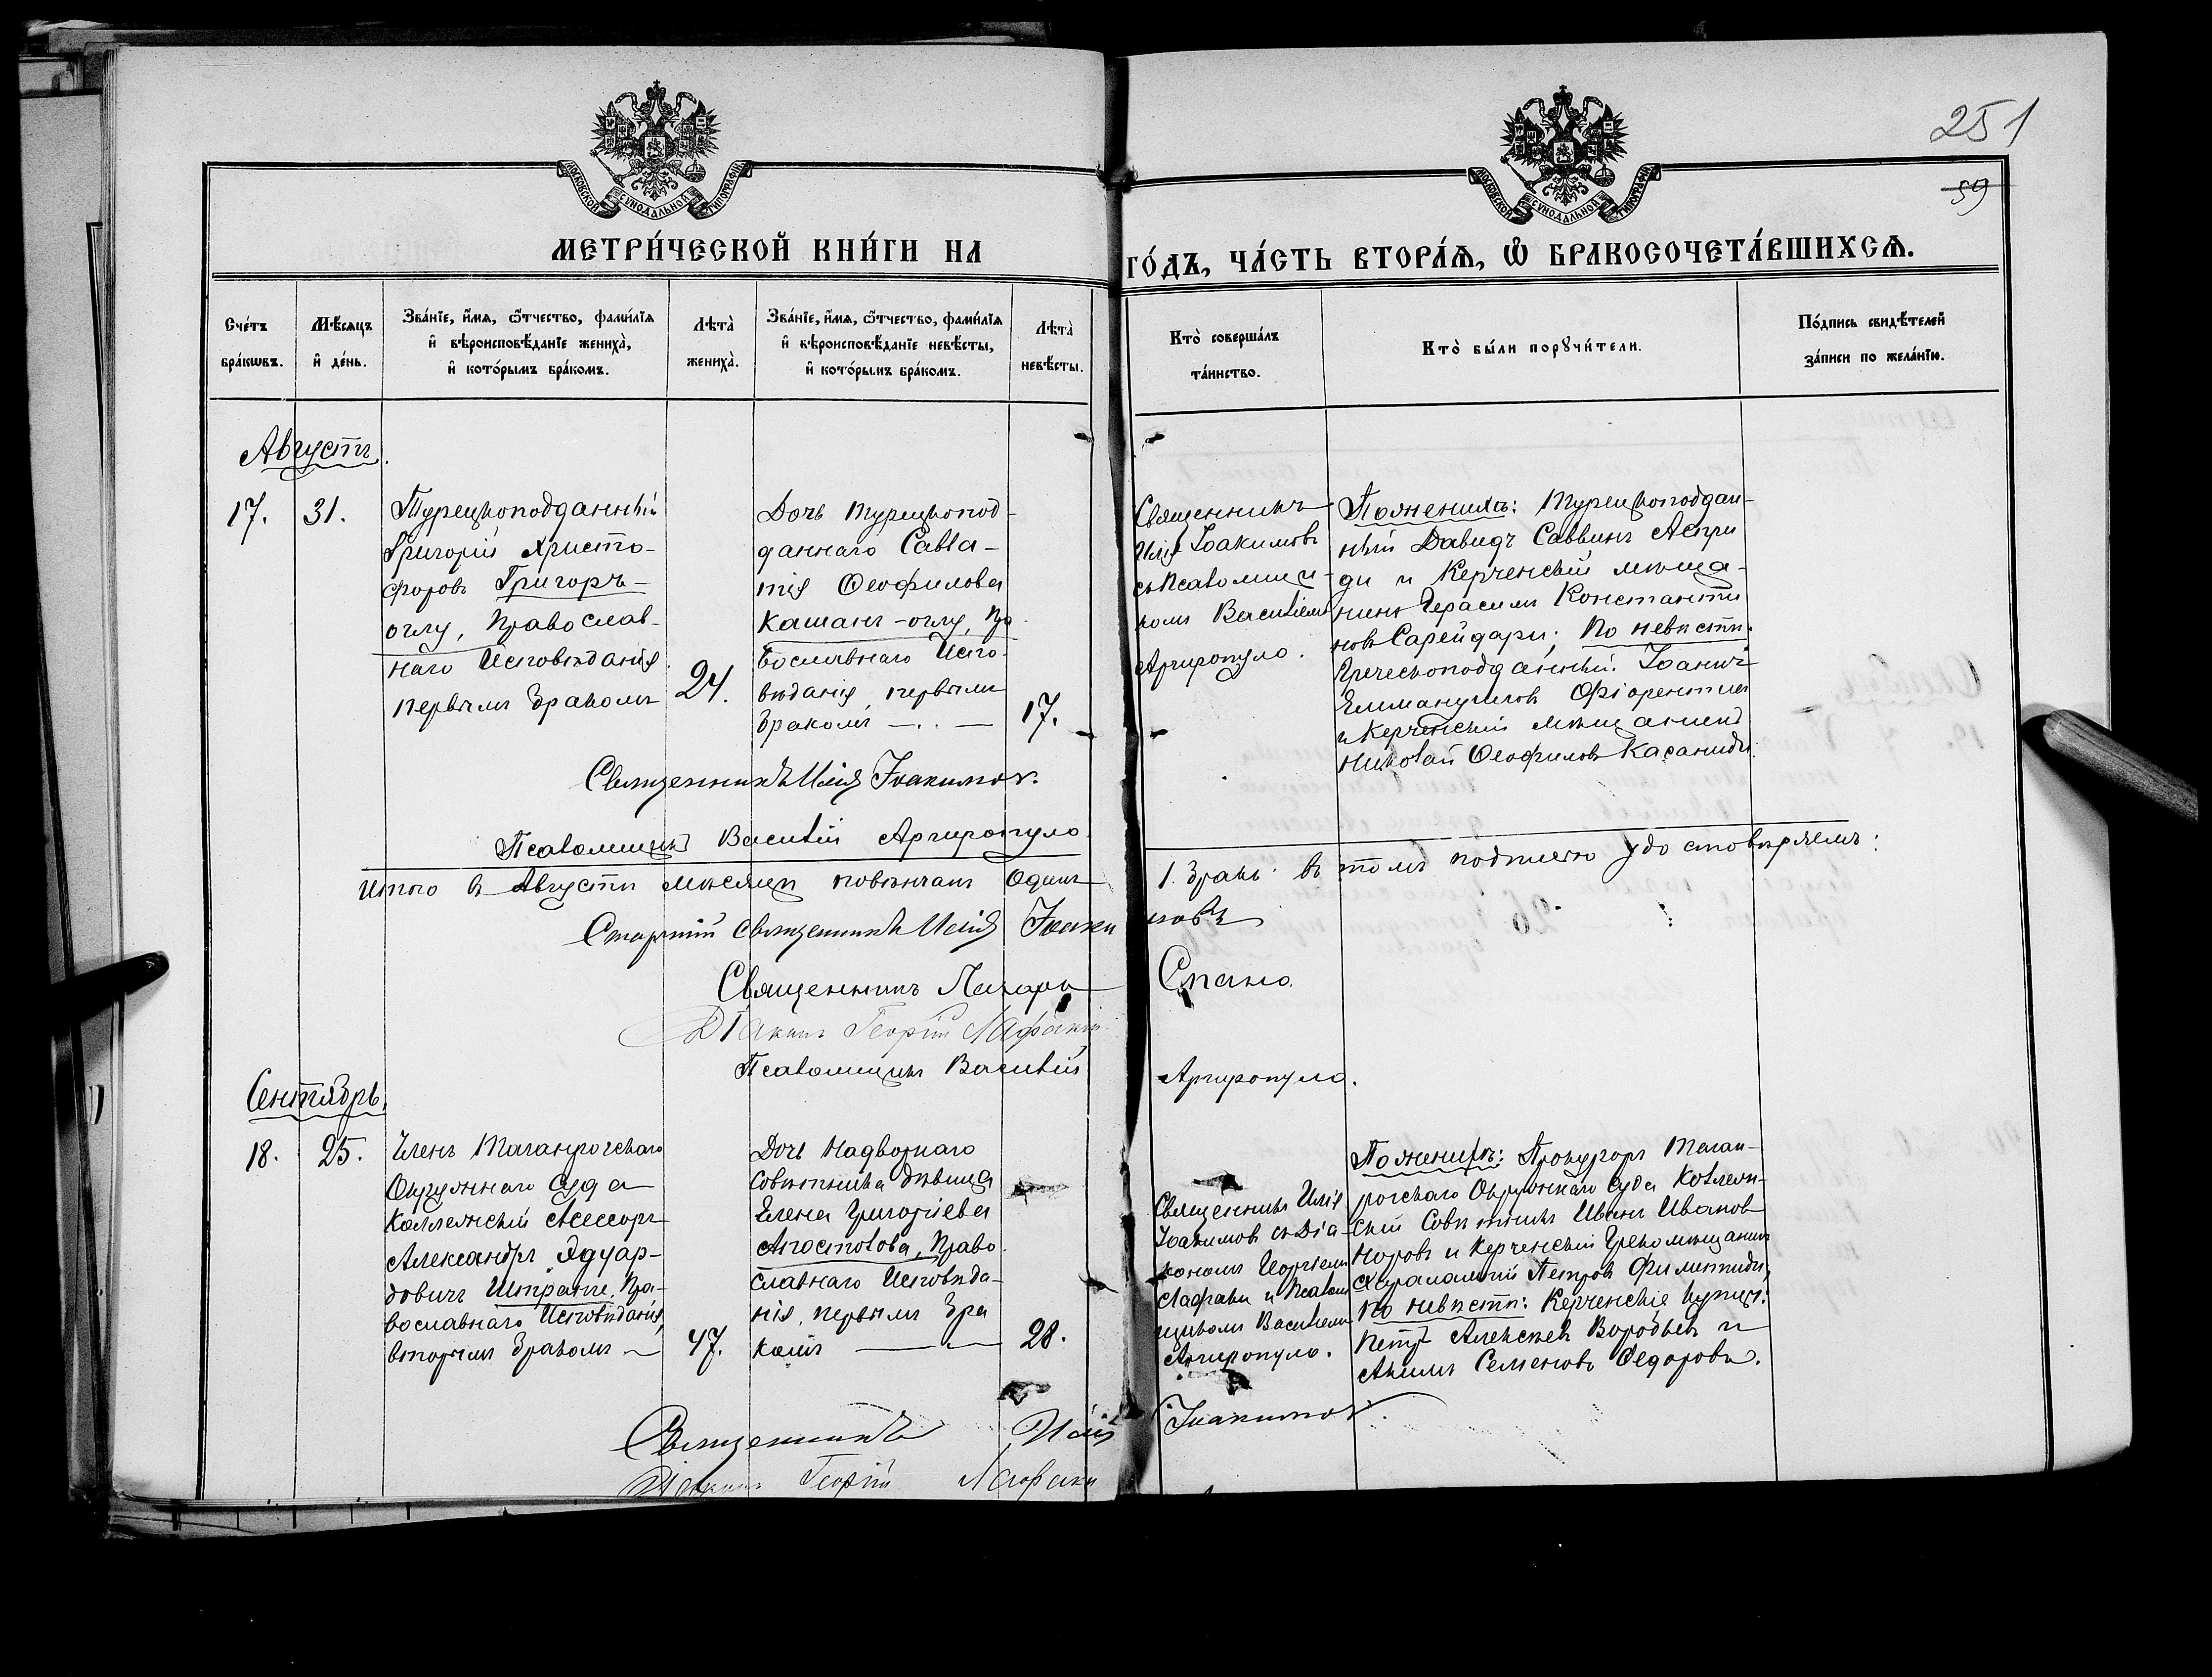 251
59
МОСКОВСКОЙ СѴНОДАЛЬНОЙ ТИПОГРАФІИ
МОСКОВСКОЙ СѴНОДАЛЬНОЙ ТИПОГРАФІИ
МЕТРИ́ЧЕСКОЙ КНИ́ГИ НА ГО́ДЪ, ЧА́СТЬ ВТОРА́Ѧ, Ѽ БРАКОСОЧЕТА́ВШИХСѦ.
Сче́тъ
бра́кѡвъ.
Мѣ́сѧцъ
и҆ де́нь.
Зва́нїе, и҆́мѧ, ѻ҆́тчество, фами́лїѧ
и҆ вѣроисповѣ́данїе жениха̀,
и҆ кото́рымъ бра́комъ.
Лѣта̀
жениха̀.
Зва́нїе, и҆́мѧ, ѻ҆́тчество, фами́лїѧ
и҆ вѣроисповѣ́данїе невѣ́сты,
и҆ кото́рымъ бра́комъ.
Лѣта̀
невѣ́сты.
Кто̀ соверша́лъ
та́инство.
Кто̀ бы́ли порꙋчи́тели.
По́дпись свидѣ́телей
за́писи по жела́нїю.
Августъ.
17.
31.
Турецкоподданный
Григорій Христо-
форовъ Григоръ-
оглу, Православ-
наго Исповѣданія
первымъ бракомъ
24.
Дочь турецкопод-
даннаго Савва-
тія Ѳеофилова
Кашанъ-оглу, Пра-
вославнаго Испо-
вѣданія, первымъ
бракомъ —..—
17.
Священникъ
Илія Іоакимовъ
съ Псаломщи-
комъ Василіемъ
Аргиропуло.
По женихѣ: Турецкоподдан-
ный Давидъ Саввинъ Аспри
ди и Керченскій мѣща-
нинъ Герасимъ Константи
новъ Сарейдари; По невѣстѣ:
Греческоподданный Іоаннъ
Еммануиловъ Фіорентин
и Керченскій мѣщанинъ
Николай Ѳеофиловъ Касаниди
Священникъ Илія Іоакимов.
Псаломщикъ Василій Аргиропуло.
Итого въ Августѣ мѣсяцѣ повѣнчанъ Одинъ 1. бракъ въ томъ подписью удостовѣряемъ:
Старшій Священникъ Илія Іоакимовъ
Священникъ Лазарь Спано.
Діаконъ Георгій Лафаки
Псаломщикъ Василій Аргиропуло.
Сентябрь.
18.
25.
Членъ Таганрогскаго
Окружнаго Суда
Коллежскій Асессоръ
Александръ Эдуар-
довичъ Штранге, Пра-
вославнаго Исповѣданія,
вторымъ бракомъ —
47.
Дочь Надворнаго
Совѣтника дѣвица
Елена Григоріева
Апостолова, Право
славнаго Исповѣда-
нія, первымъ бра
комъ ——
28.
Священникъ Илія
Іоакимовъ съ Діа-
кономъ Георгіемъ
Лафаки и Псалом
щикомъ Василіемъ
Аргиропуло.
По женихѣ: Прокуроръ Таган-
рогскаго Окружнаго Суда Коллеж-
скій Совѣтникъ Иванъ Иванов
Норовъ и Керченскій Грекомѣщанинъ
Харалампій Петровъ Филиппиди,
по невѣстѣ: Керченскіе купцы:
Петръ Алексѣевъ Воробьевъ и
Акимъ Семеновъ Ѳедоровъ.
Священникъ Илія Іоакимов.
Діаконъ Георгій Лафаки